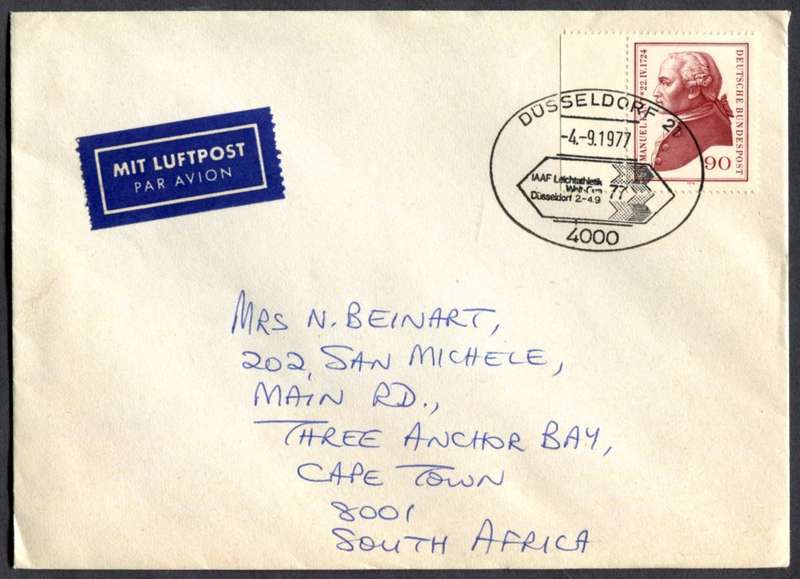 MIT LUFTPOST
PAR AVION
DÜSSELDORF 21
-4.-9.1977
IAAF Leichtathletik
Welt-Cup 77
Düsseldorf 2.-4.9
4000
MANUEL
*22.IV.1724
DEUTSCHE BUNDESPOST
90
MRS N. BEINART,
202, SAN MICHELE,
MAIN RD.,
THREE ANCHOR BAY,
CAPE TOWN
8001
SOUTH AFRICA